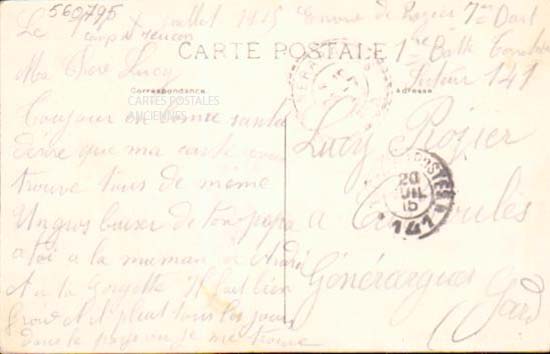 560795
Le juillet 1915 Envoi de Rozier 7me Dart
1re Batt
Secteur 141
CARTE POSTALE
Ma Chère Lucy
Correspondance
Adresse
CARTES POSTALES
ANCIENNES
Toujour en bonne santé
désire que ma carte vous
trouve tous de même
Un gros baiser de ton papa
a toi a la maman a André
et a la Il fait bien
froid et il pleut tous les jours
dans le pays ou je me trouve
Lucy Rozier
a
Générargues
Gard
POSTES
20
JUIL
15
141